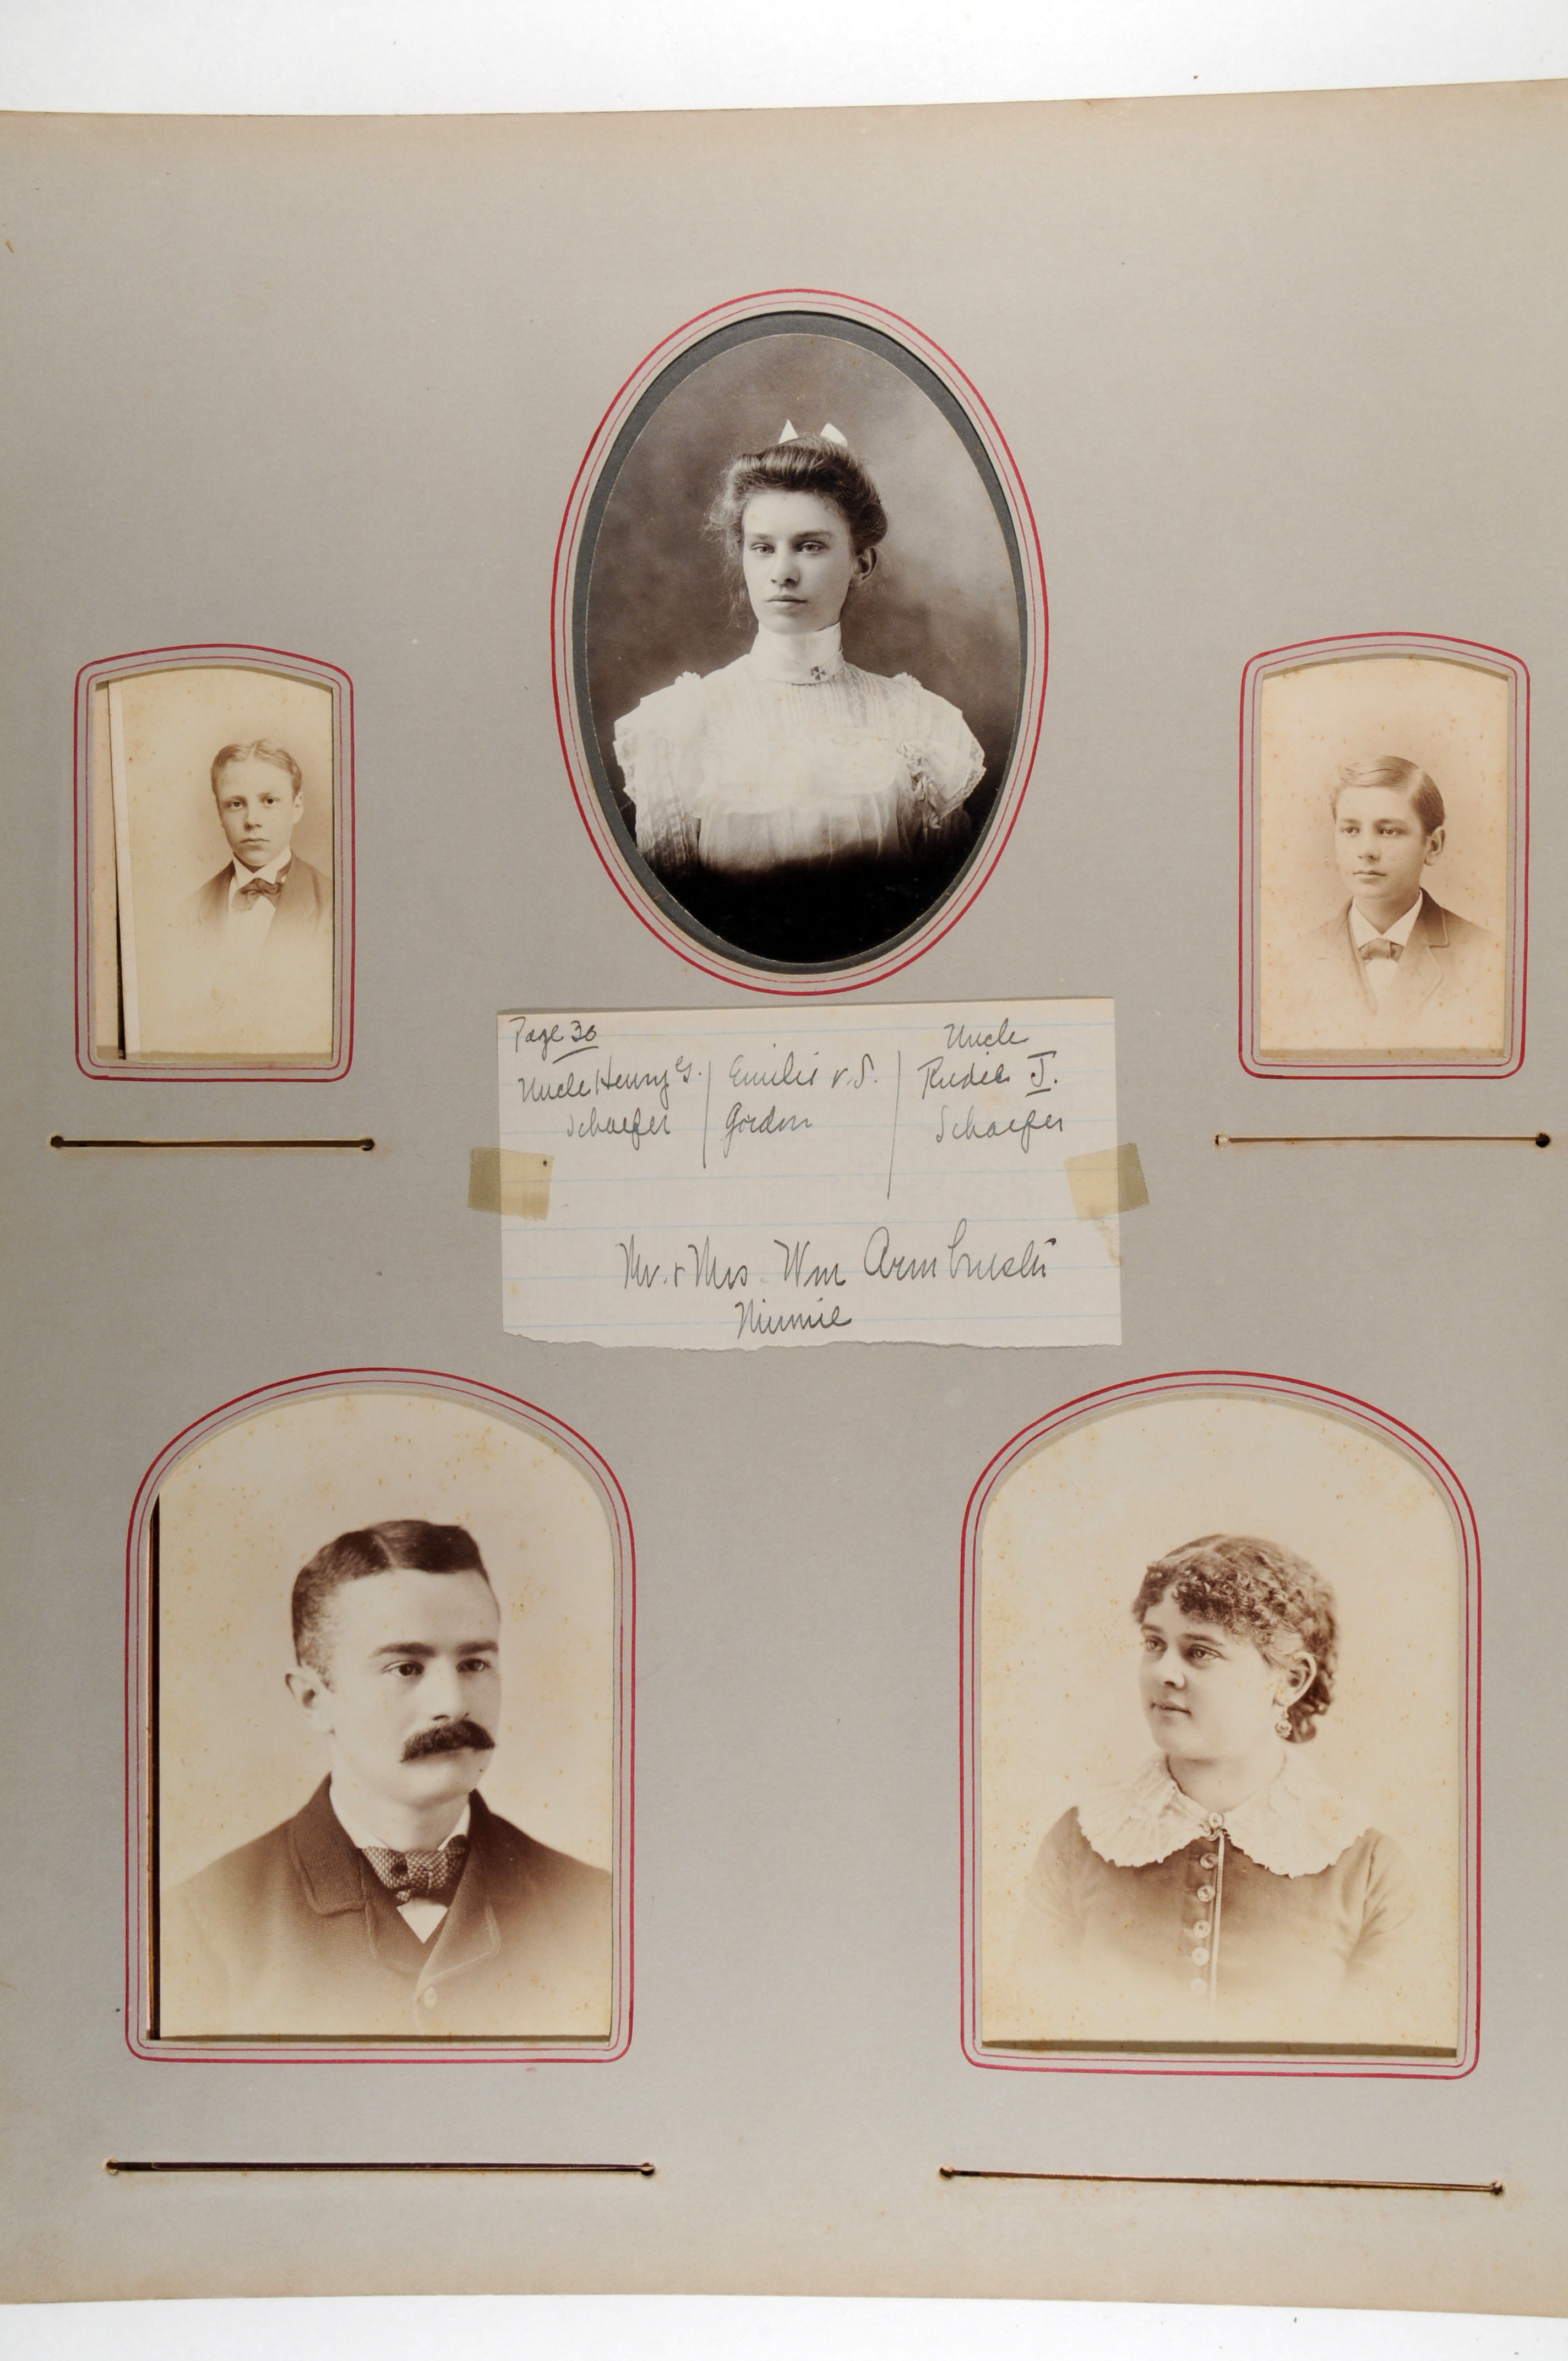 Page 30
Uncle Henry G. Schaefer
Emilie v. S. Gordon
Uncle Rudie J. Schaefer
Mr. & Mrs. Wm Armbruster
Minnie